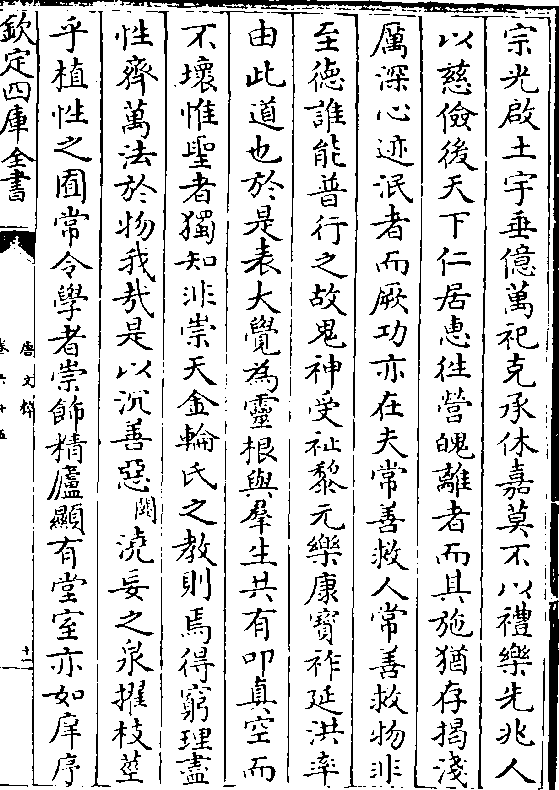 宗光啟土宇垂億萬祀克承休嘉莫不以禮樂先兆人
以慈儉後天下仁居惠往營魄離者而具施猶存揭淺
厲深心迹泯者而厥功亦在夫常善救人常善救物非
至德誰能普行之故鬼神受祉黎元樂康寶祚延洪率
由此道也於是表大覺為靈根與羣生共有叩真空而
不壞惟聖者獨知非崇天金輪氏之教則焉得窮理盡
性齊萬法於物我哉是以沉善惡闕澆妄之泉擢枝莖
乎植性之囿常令學者崇飾精廬顯有堂室亦如庠序
欽定四庫全書
唐文粹
卷六十五
十二